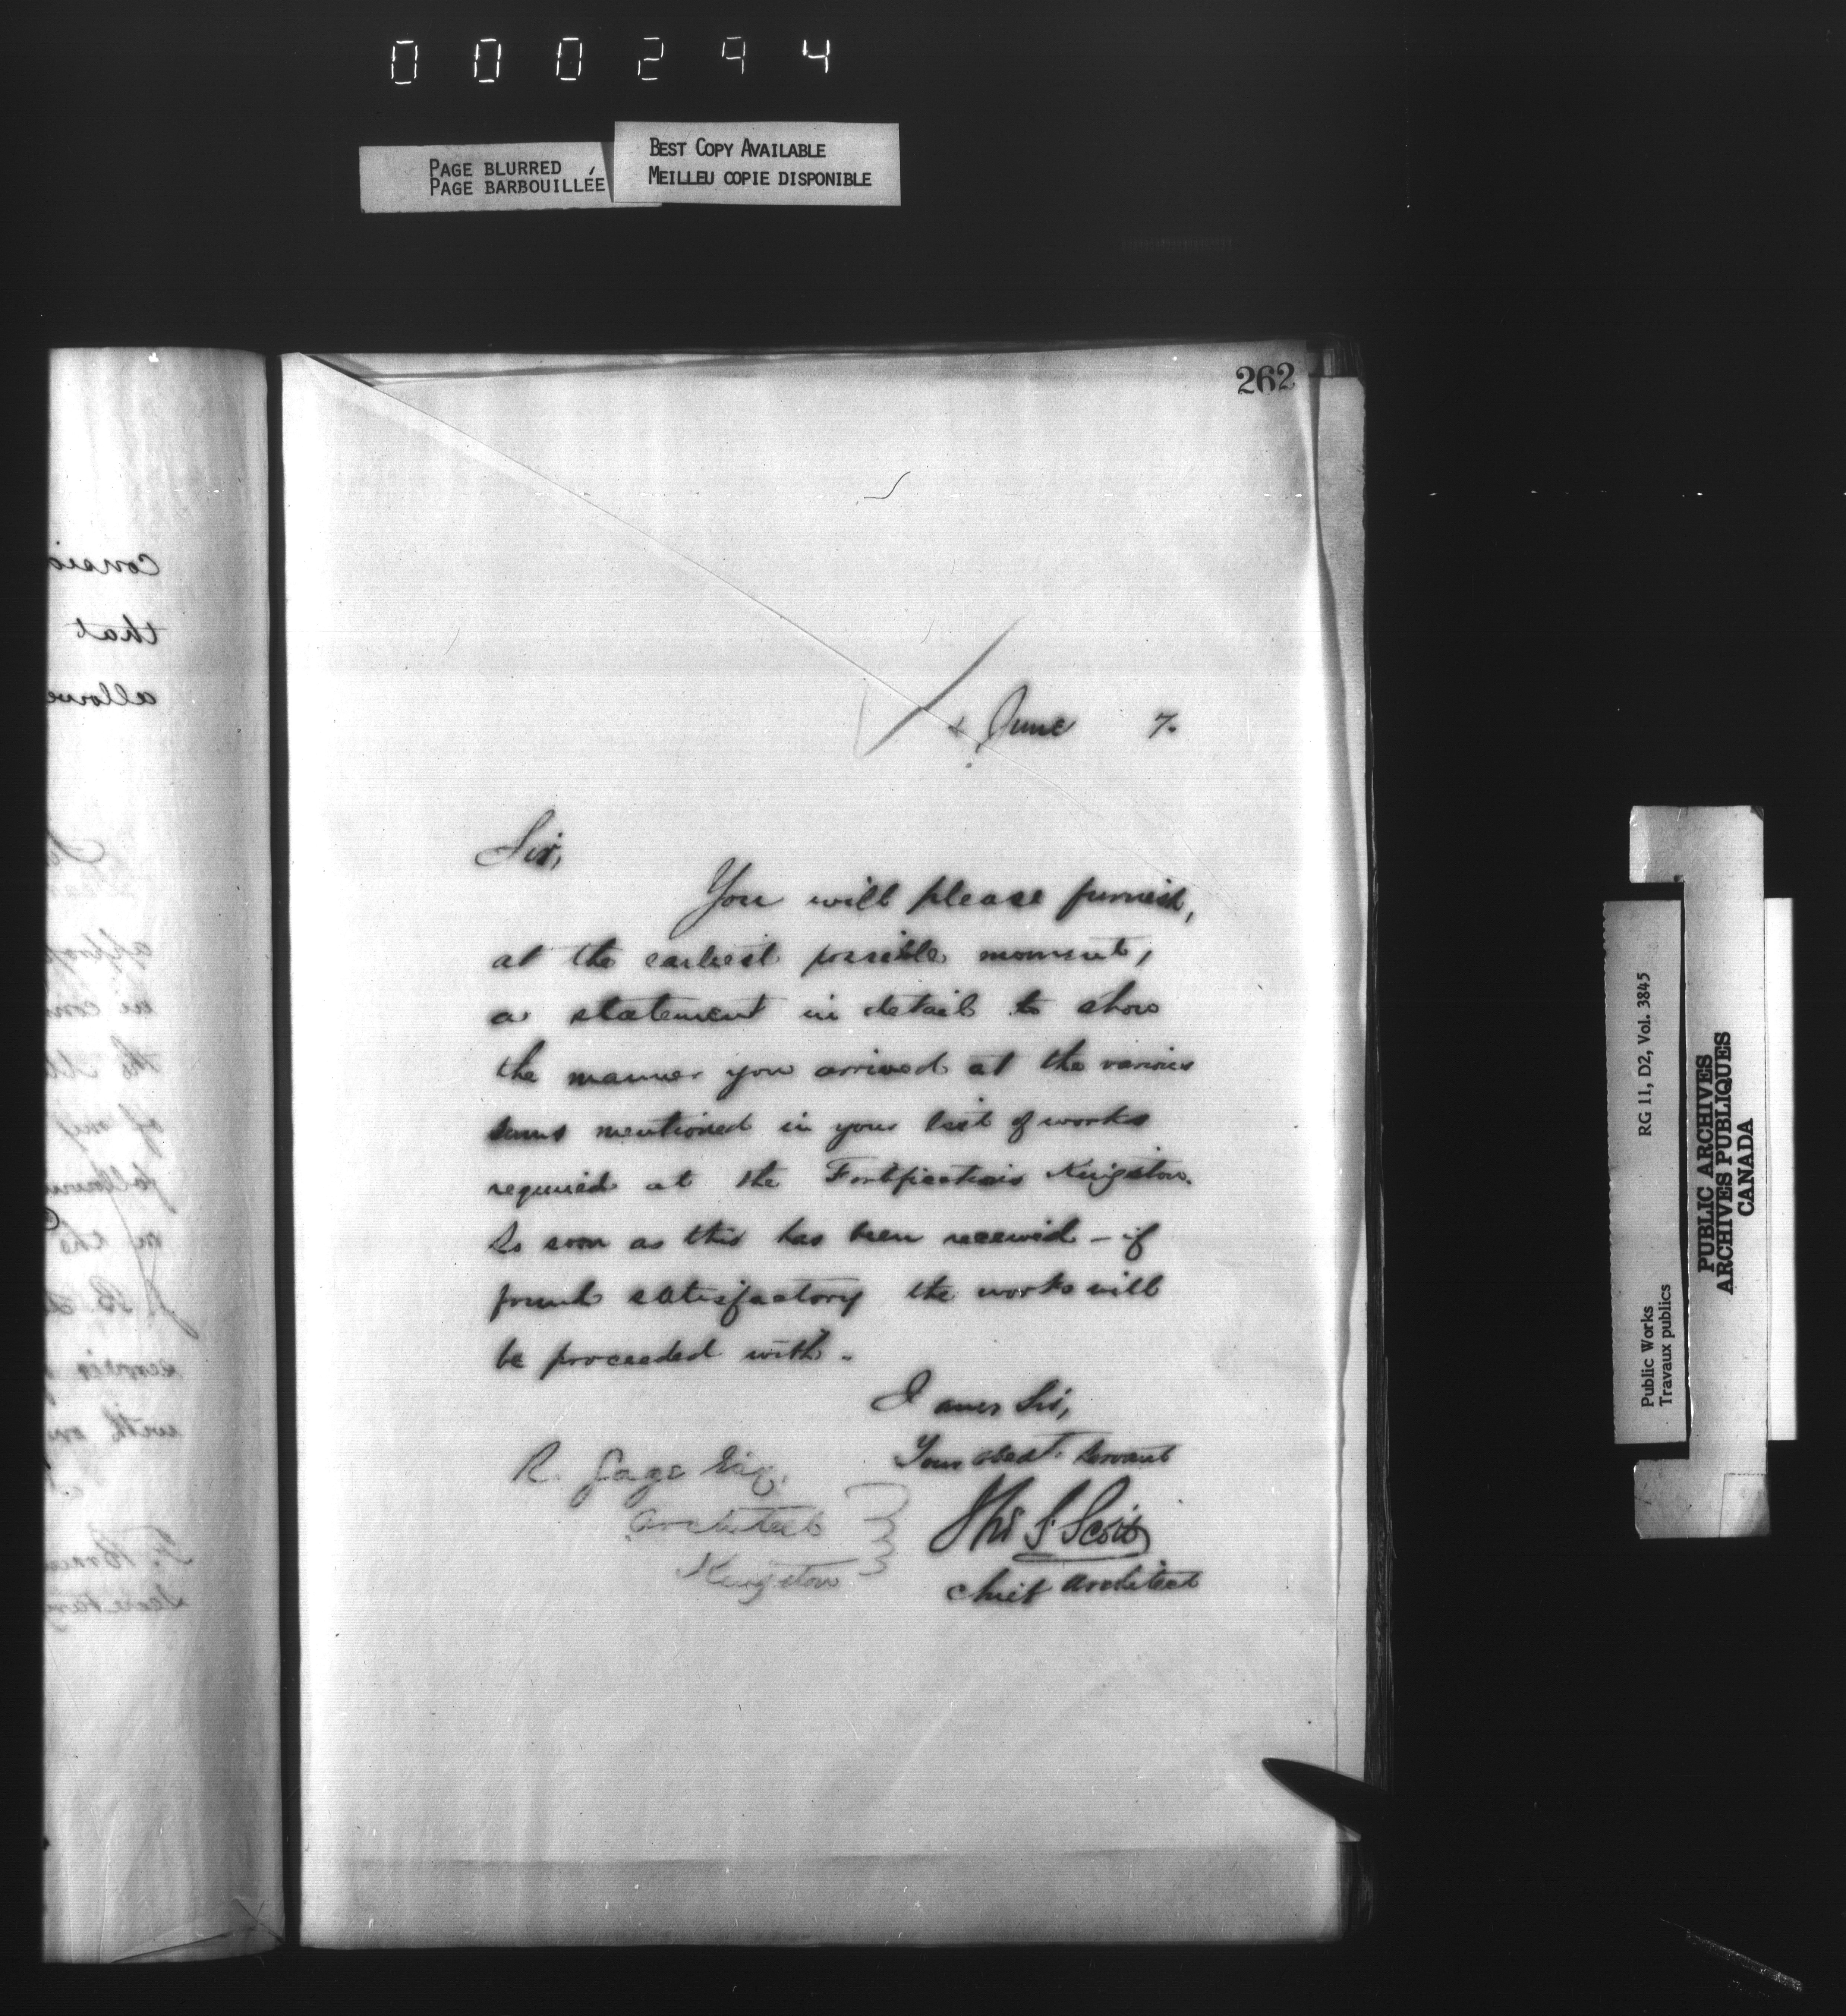 000294
PAGE BLURRED
PAGE BARBOUILLÉE
BEST COPY AVAILABLE
MEILLEU COPIE DISPONIBLE
262
4 June 7.
Sir,
You will please furnish,
at the earliest possible moment,
a statement in detail to show
the manner you arrived at the various
sums mentioned in your list of works
required at the Fortifications Kingston.
As soon as this has been received – if
found satisfactory the works will
be proceeded with.
I am Sir,
Your obedt. Servant
Thos S. Scott
Chief Architect
R. Gage Esq.
Architect
Kingston
consid
that
allowe
of my
on the
with
Secretary
Public Works
Travaux publics
RG 11, D2, Vol. 3845
PUBLIC ARCHIVES
ARCHIVES PUBLIQUES
CANADA